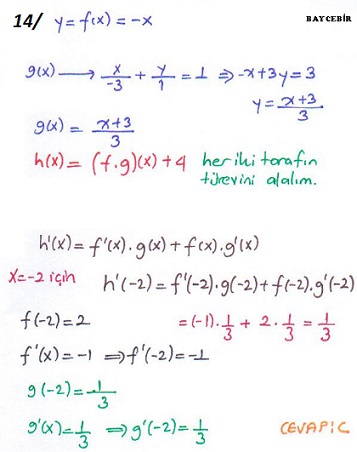 14/ y = f(x) = -x
BAYCEBİR
g(x) ⟶ x/-3 + y/1 = 1 ⇒ -x+3y = 3
y = x+3/3
g(x) = x+3/3
h(x) = (f.g)(x) + 4 her iki tarafın
türevini alalım.
h'(x) = f'(x).g(x) + f(x).g'(x)
x=-2 için h'(-2) = f'(-2).g(-2) + f(-2).g'(-2)
f(-2) = 2 = (-1).1/3 + 2.1/3 = 1/3
f'(x) = -1 ⇒ f'(-2) = -1
g(-2) = 1/3
g'(x) = 1/3 ⇒ g'(-2) = 1/3
CEVAP : C